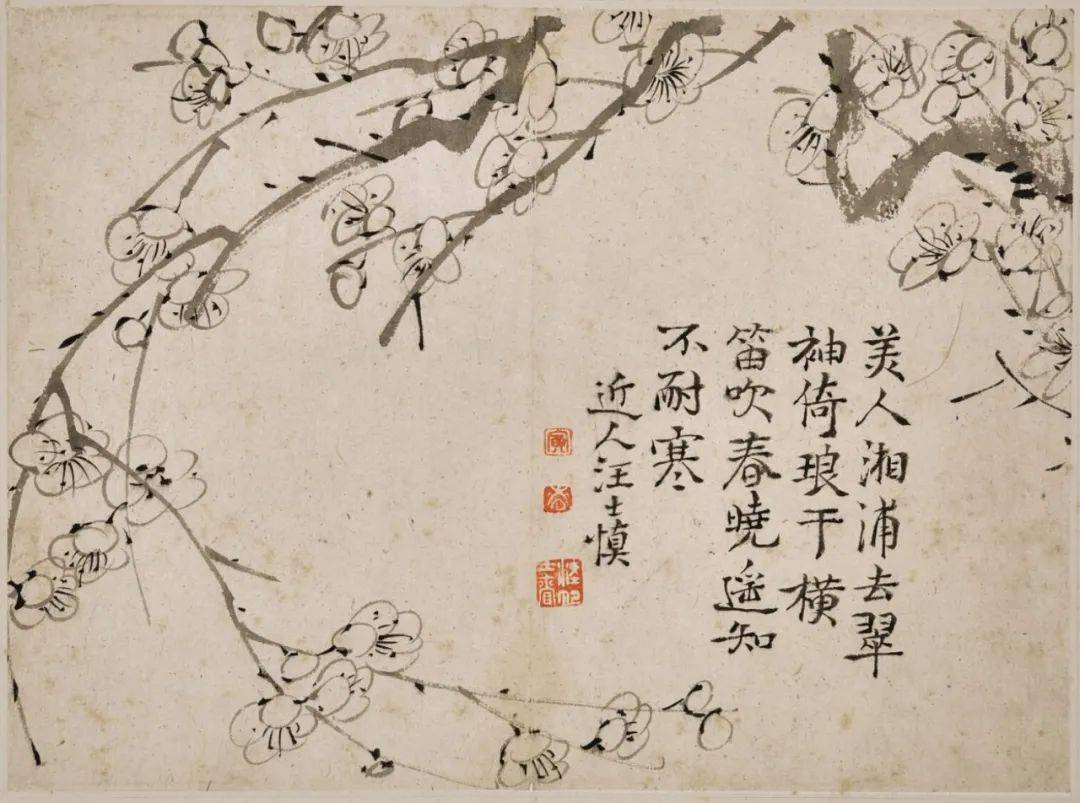 美人湘浦去翠
袖倚琅干横
笛吹春曉遥知
不耐寒
近人汪士慎